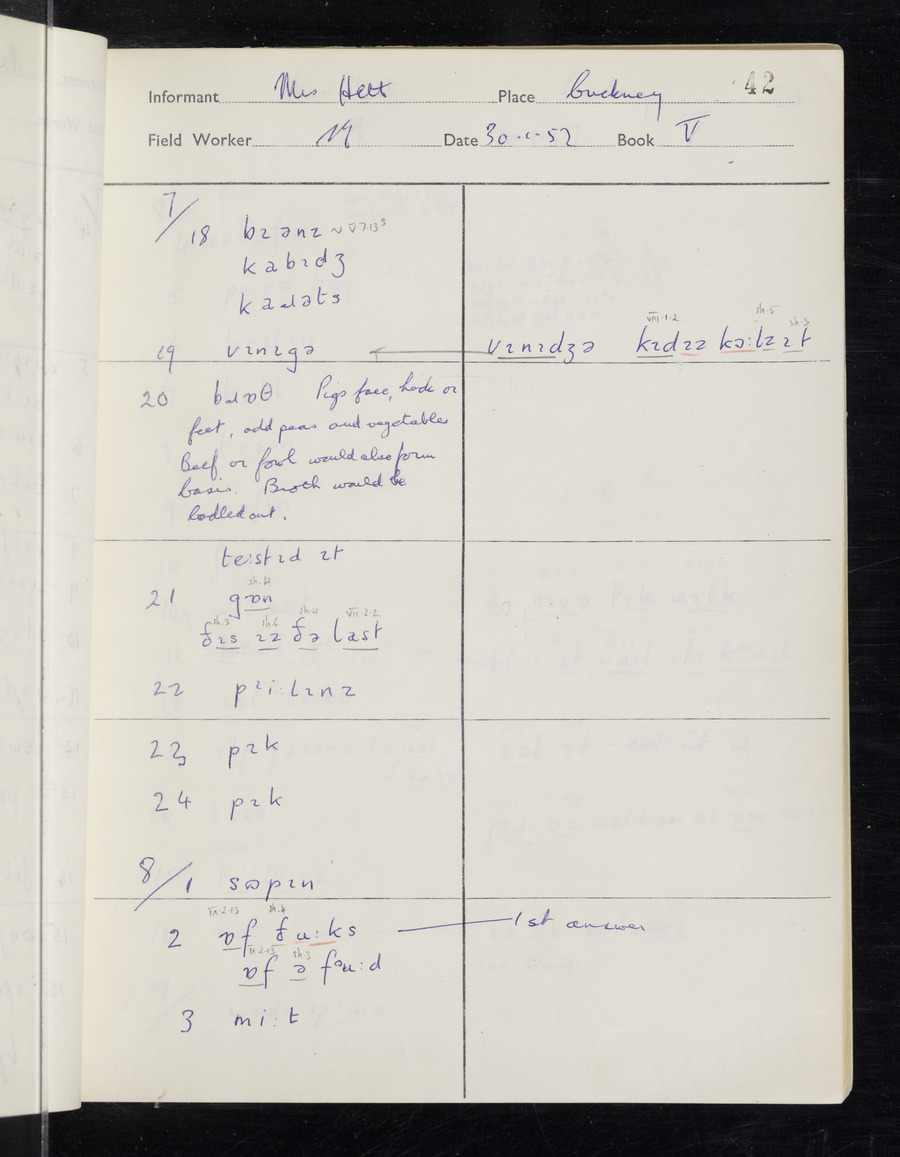 Informant Mrs Hett Place Buckney 42
Field Worker Date 30 · · 52 Book V
7/
18 bɪənz ~ V·7·13³
kabɪdʒ
kaɹəts
19 vɪnɪgə
vɪnɪdʒə kɪdɪz kɔ:lz ɪt
VIII·1·2 sh·5 sh·3
20 bɹɒθ Pigs face, hock or
feet, add peas and vegetables
Beef or fowl would also form
basis. Broth would be
ladled out.
te:stɪd ɪt
sh·4
21 gɒn
sh·3 sh·6 sh·4 VII·2·2
ðɪs ɪz ðə last
22 pɪi:lɪnz
23 pɪk
24 pɪk
8/
1 sɒpɪn
IX·2·13 sh·4
2 ɒf ðu:ks 1st answer
IX·2·13 sh·3
ɒf ə fəu:d
3 mi:t